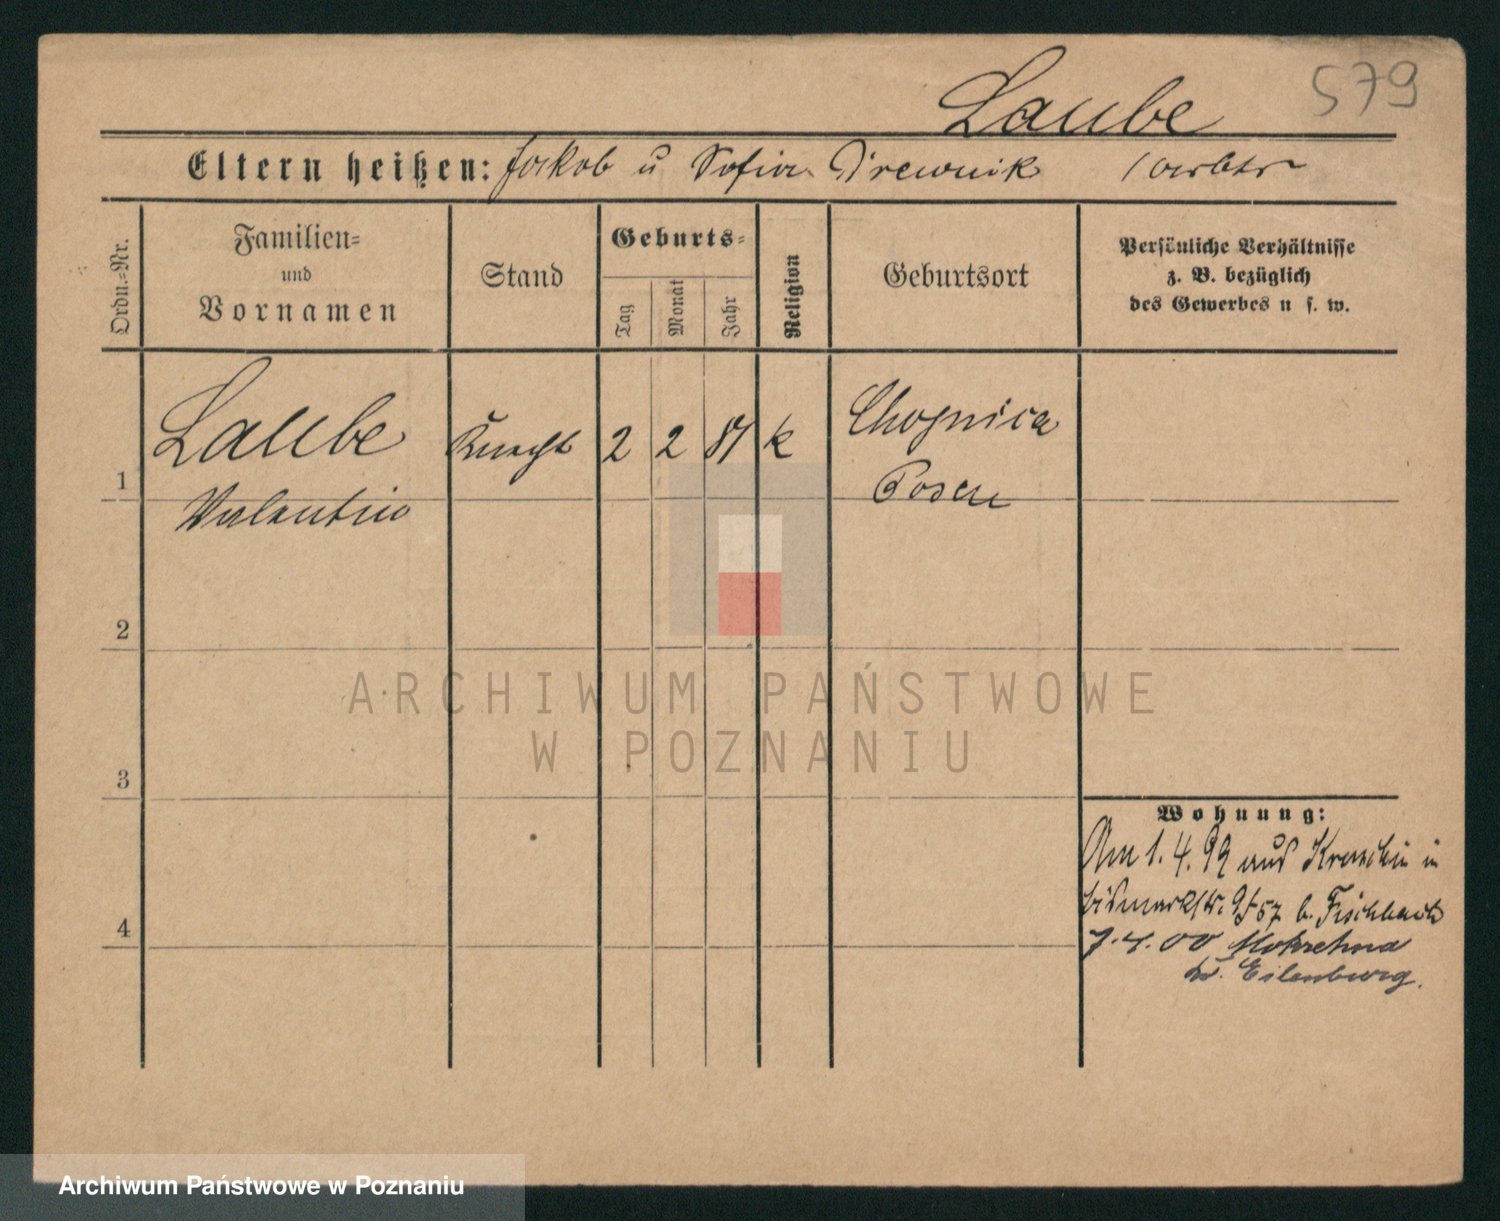 Laube 579
Eltern heißen: Jakob u Sofia Drewnik
Ordn.-Nr.
Familien-
und
Vornamen
Stand
Geburts-
Tag
Monat
Jahr
Religion
Geburtsort
Persönliche Verhältnisse
z. B. bezüglich
des Gewerbes u s. w.
1 Laube Knecht 2 2 81 k Chojnica
Valentin Posen
2
3
4
Wohnung:
Am 1. 4. 99 aus in
bismarkstr. 57 b. Fischbach
7.4.00 Mokrehna
Eilenburg.
ARCHIWUM PAŃSTWOWE
W POZNANIU
Archiwum Państwowe w Poznaniu